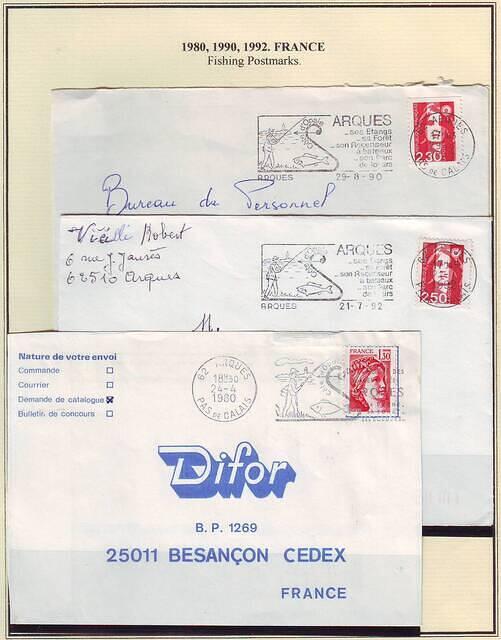 1980, 1990, 1992. FRANCE
Fishing Postmarks.
Côte d'Opale
ARQUES
...ses Etangs
...sa Forêt
...son Ascenseur
à bateaux
...son Parc
de loisirs
ARQUES
29-8-90
ARQUES
PAS DE CALAIS
2,30
Bureau du Personnel
Vieilli Robert
6 rue J. Jaurès
62510 Arques
ARQUES
...ses Etangs
...sa Forêt
...son Ascenseur
à bateaux
...son Parc
de loisirs
ARQUES
21-7-92
PAS DE CALAIS
2,50
M.
Nature de votre envoi
Commande
Courrier
Demande de catalogue
Bulletin de concours
62 ARQUES
18H30
24-4
1980
PAS DE CALAIS
FRANCE
1,30
ARQUES
Difor
B. P. 1269
25011 BESANÇON CEDEX
FRANCE